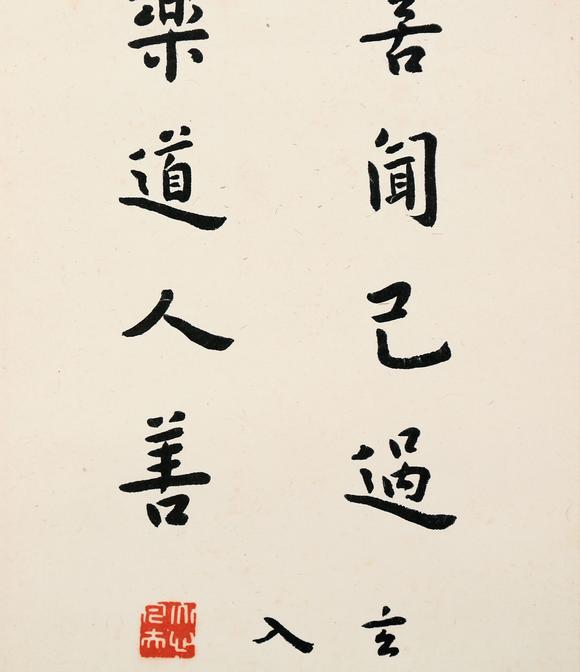 喜聞己過
樂道人善
玄入